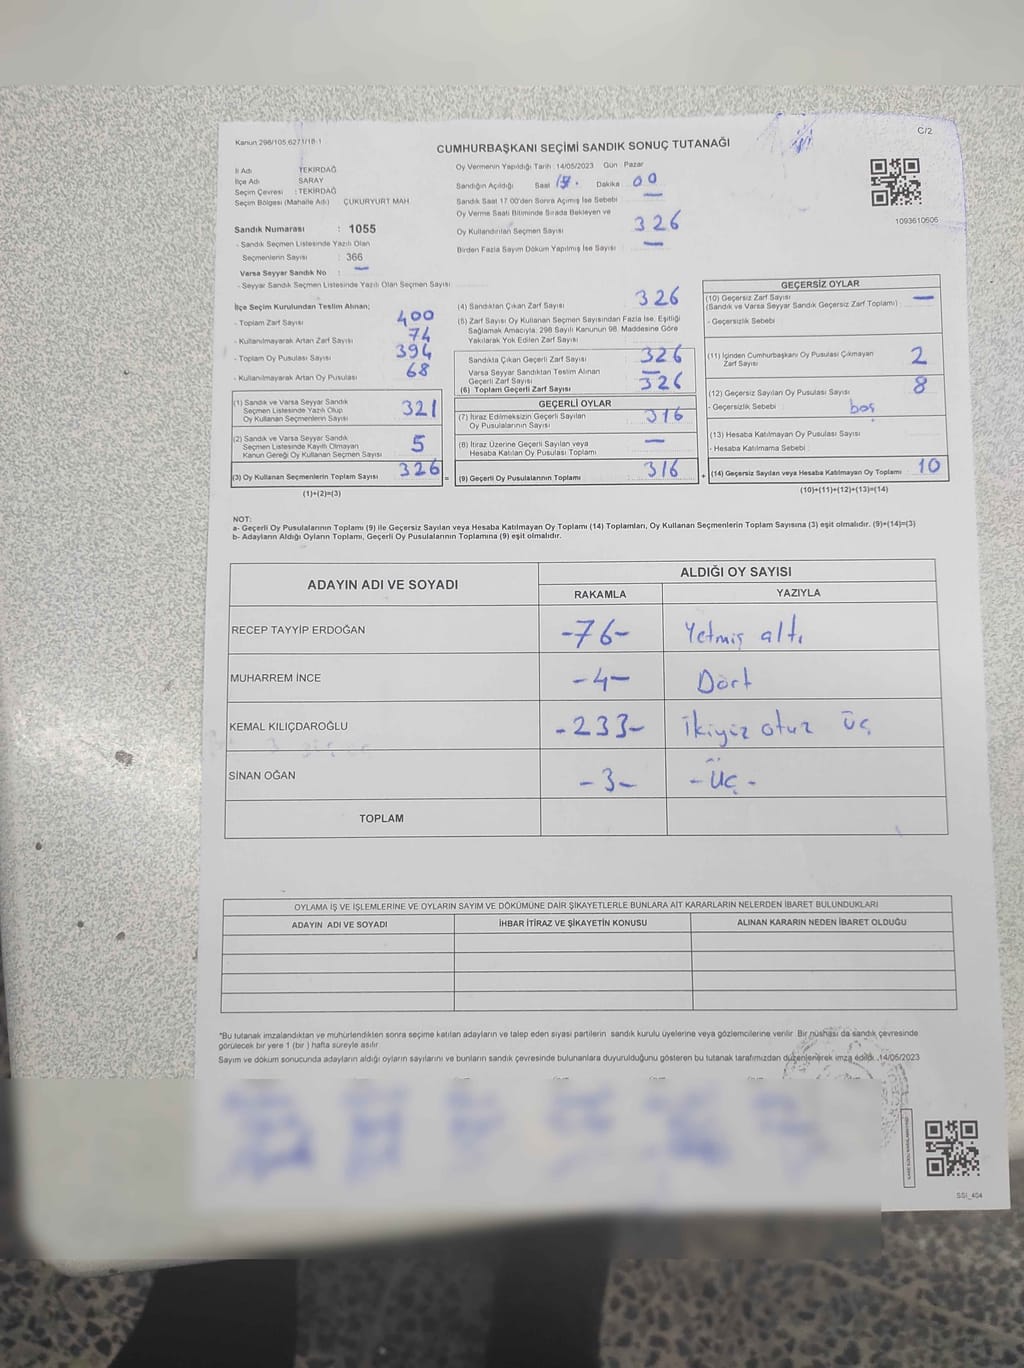 Kanun 298/105,6271/18-1
C/2
CUMHURBAŞKANI SEÇİMİ SANDIK SONUÇ TUTANAĞI
İl Adı TEKİRDAĞ
İlçe Adı SARAY
Seçim Çevresi : TEKİRDAĞ
Seçim Bölgesi (Mahalle Adı) ÇUKURYURT MAH.
Sandık Numarası : 1055
- Sandık Seçmen Listesinde Yazılı Olan
Seçmenlerin Sayısı : 366
Varsa Seyyar Sandık No : —
- Seyyar Sandık Seçmen Listesinde Yazılı Olan Seçmen Sayısı
Oy Vermenin Yapıldığı Tarih : 14/05/2023 Gün Pazar
Sandığın Açıldığı Saat 17. Dakika 00
Sandık Saat 17.00'den Sonra Açılmış İse Sebebi —
Oy Verme Saati Bitiminde Sırada Bekleyen ve
Oy Kullandırılan Seçmen Sayısı 326
Birden Fazla Sayım Döküm Yapılmış İse Sayısı —
1093610606
İlçe Seçim Kurulundan Teslim Alınan;
- Toplam Zarf Sayısı 400
- Kullanılmayarak Artan Zarf Sayısı 74
- Toplam Oy Pusulası Sayısı 394
- Kullanılmayarak Artan Oy Pusulası 68
(1) Sandık ve Varsa Seyyar Sandık
Seçmen Listesinde Yazılı Olup
Oy Kullanan Seçmenlerin Sayısı 321
(2) Sandık ve Varsa Seyyar Sandık
Seçmen Listesinde Kayıtlı Olmayan
Kanun Gereği Oy Kullanan Seçmen Sayısı 5
(3) Oy Kullanan Seçmenlerin Toplam Sayısı 326
(1)+(2)=(3)
=
(4) Sandıktan Çıkan Zarf Sayısı 326
(5) Zarf Sayısı Oy Kullanan Seçmen Sayısından Fazla İse, Eşitliği
Sağlamak Amacıyla; 298 Sayılı Kanunun 98. Maddesine Göre
Yakılarak Yok Edilen Zarf Sayısı
Sandıkta Çıkan Geçerli Zarf Sayısı 326
Varsa Seyyar Sandıktan Teslim Alınan
Geçerli Zarf Sayısı —
(6) Toplam Geçerli Zarf Sayısı 326
GEÇERLİ OYLAR
(7) İtiraz Edilmeksizin Geçerli Sayılan
Oy Pusulalarının Sayısı 316
(8) İtiraz Üzerine Geçerli Sayılan veya
Hesaba Katılan Oy Pusulası Toplamı —
(9) Geçerli Oy Pusulalarının Toplamı 316
+
GEÇERSİZ OYLAR
(10) Geçersiz Zarf Sayısı
(Sandık ve Varsa Seyyar Sandık Geçersiz Zarf Toplamı) —
- Geçersizlik Sebebi
(11) İçinden Cumhurbaşkanı Oy Pusulası Çıkmayan
Zarf Sayısı 2
(12) Geçersiz Sayılan Oy Pusulası Sayısı 8
- Geçersizlik Sebebi boş
(13) Hesaba Katılmayan Oy Pusulası Sayısı
- Hesaba Katılmama Sebebi
(14) Geçersiz Sayılan veya Hesaba Katılmayan Oy Toplamı 10
(10)+(11)+(12)+(13)=(14)
NOT:
a- Geçerli Oy Pusulalarının Toplamı (9) ile Geçersiz Sayılan veya Hesaba Katılmayan Oy Toplamı (14) Toplamları, Oy Kullanan Seçmenlerin Toplam Sayısına (3) eşit olmalıdır. (9)+(14)=(3)
b- Adayların Aldığı Oyların Toplamı, Geçerli Oy Pusulalarının Toplamına (9) eşit olmalıdır.
ADAYIN ADI VE SOYADI
ALDIĞI OY SAYISI
RAKAMLA YAZIYLA
RECEP TAYYİP ERDOĞAN -76- Yetmiş altı
MUHARREM İNCE -4- Dört
KEMAL KILIÇDAROĞLU -233- İkiyüz otuz üç
SİNAN OĞAN -3- -Üç-
TOPLAM
OYLAMA İŞ VE İŞLEMLERİNE VE OYLARIN SAYIM VE DÖKÜMÜNE DAİR ŞİKAYETLERLE BUNLARA AİT KARARLARIN NELERDEN İBARET BULUNDUKLARI
ADAYIN ADI VE SOYADI İHBAR İTİRAZ VE ŞİKAYETİN KONUSU ALINAN KARARIN NEDEN İBARET OLDUĞU
*Bu tutanak imzalandıktan ve mühürlendikten sonra seçime katılan adayların ve talep eden siyasi partilerin sandık kurulu üyelerine veya gözlemcilerine verilir. Bir nüshası da sandık çevresinde
görülecek bir yere 1 (bir ) hafta süreyle asılır.
Sayım ve döküm sonucunda adayların aldığı oyların sayılarını ve bunların sandık çevresinde bulunanlara duyurulduğunu gösteren bu tutanak tarafımızdan düzenlenerek imza edildi. 14/05/2023
SSİ_404